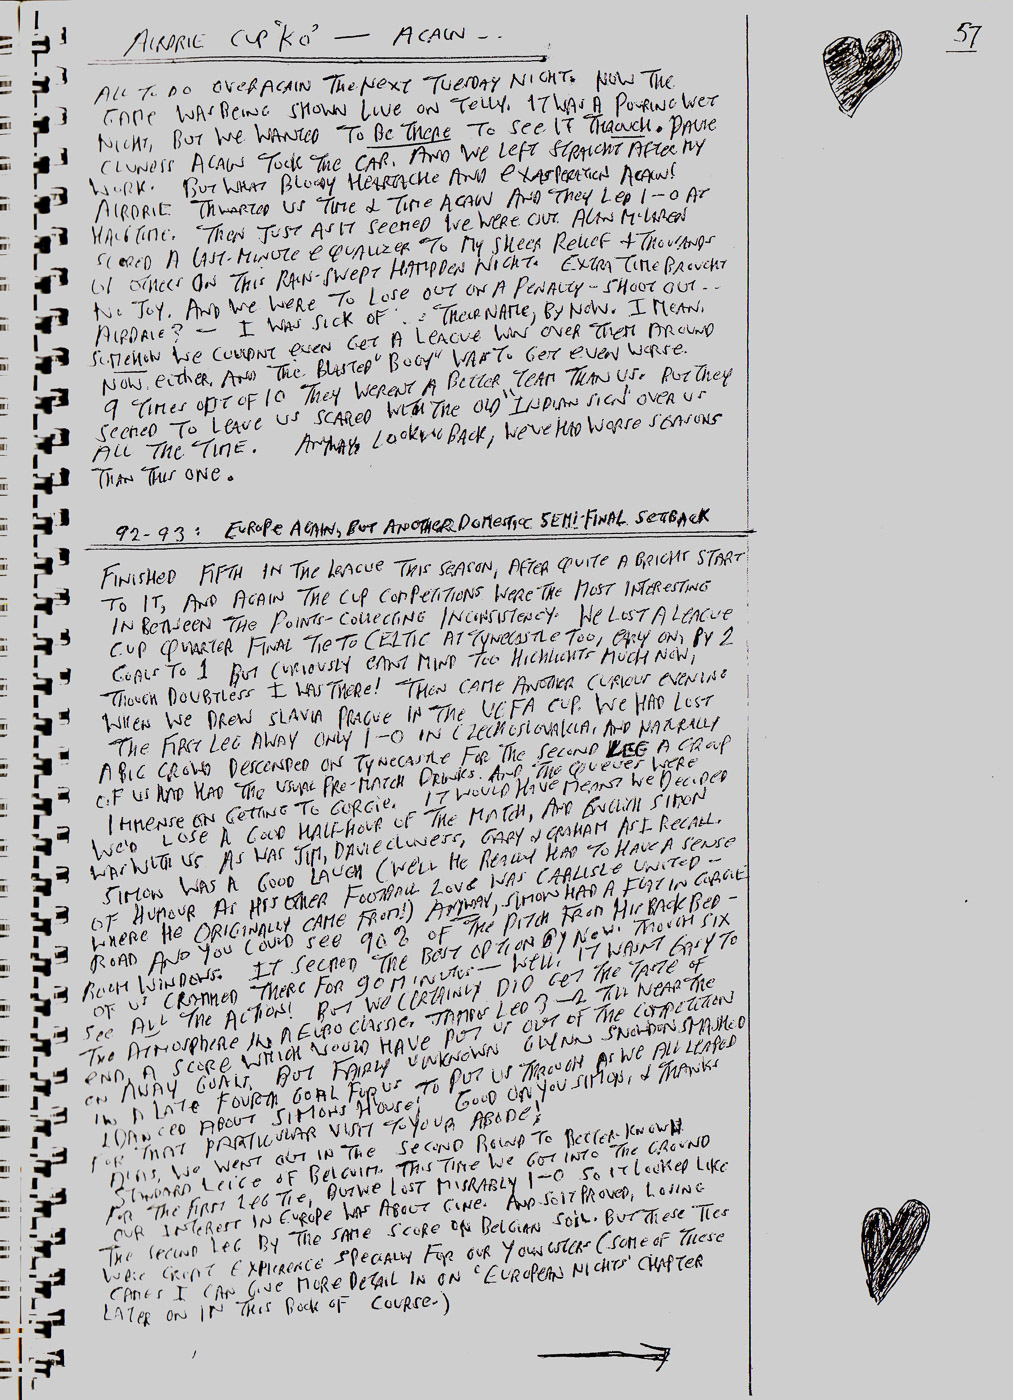 57
AIRDRIE CUP "KO" — AGAIN --
ALL TO DO OVER AGAIN THE NEXT TUESDAY NIGHT. NOW THE
GAME WAS BEING SHOWN LIVE ON TELLY. IT WAS A POURING WET
NIGHT, BUT WE WANTED TO BE THERE TO SEE IT THROUGH. DAVIE
CLUNESS AGAIN TOOK THE CAR. AND WE LEFT STRAIGHT AFTER MY
WORK. BUT WHAT BLOODY HEARTACHE AND EXASPERATION AGAIN!
AIRDRIE THWARTED US TIME & TIME AGAIN AND THEY LED 1-0 AT
HALF TIME. THEN JUST AS IT SEEMED WE WERE OUT ALAN McLAREN
SCORED A LAST-MINUTE EQUALIZER TO MY SHEER RELIEF & THOUSANDS
OF OTHERS ON THIS RAIN-SWEPT HAMPDEN NIGHT. EXTRA TIME BROUGHT
NO JOY. AND WE WERE TO LOSE OUT ON A PENALTY-SHOOT OUT--
AIRDRIE? — I WAS SICK OF .. : THEIR NAME, BY NOW. I MEAN,
SOMEHOW WE COULDNT EVEN GET A LEAGUE WIN OVER THEM AROUND
NOW, EITHER, AND THE BLASTED "BOGY" WAS TO GET EVEN WORSE.
9 TIMES OUT OF 10 THEY WERENT A BETTER TEAM THAN US. BUT THEY
SEEMED TO LEAVE US SCARED WITH THE OLD "INDIAN SIGN" OVER US
ALL THE TIME. ANYWAY, LOOKING BACK, WE'VE HAD WORSE SEASONS
THAN THIS ONE.
92-93: EUROPE AGAIN, BUT ANOTHER DOMESTIC SEMI-FINAL SETBACK
FINISHED FIFTH IN THE LEAGUE THIS SEASON, AFTER QUITE A BRIGHT START
TO IT, AND AGAIN THE CUP COMPETITIONS WERE THE MOST INTERESTING
IN BETWEEN THE POINTS-COLLECTING INCONSISTENCY. WE LOST A LEAGUE
CUP QUARTER FINAL TIE TO CELTIC AT TYNECASTLE TOO, EARLY ON, BY 2
GOALS TO 1 BUT CURIOUSLY CANT MIND TOO HIGHLIGHTS MUCH NOW,
THOUGH DOUBTLESS I WAS THERE! THEN CAME ANOTHER CURIOUS EVENING
WHEN WE DREW SLAVIA PRAGUE IN THE UEFA CUP. WE HAD LOST
THE FIRST LEG AWAY ONLY 1-0 IN CZECHOSLOVAKIA, AND NATURALLY
A BIG CROWD DESCENDED ON TYNECASTLE FOR THE SECOND LEG A GROUP
OF US HAD HAD THE USUAL PRE-MATCH DRINKS. AND THE QUEUES WERE
IMMENSE ON GETTING TO GORGIE. IT WOULD HAVE MEANT WE DECIDED
WE'D LOSE A GOOD HALF-HOUR OF THE MATCH, AND ENGLISH SIMON
WAS WITH US AS WAS JIM, DAVIE CLUNESS, GARY & GRAHAM AS I RECALL.
SIMON WAS A GOOD LAUGH (WELL HE REALLY HAD TO HAVE A SENSE
OF HUMOUR AS HIS OTHER FOOTBALL LOVE WAS CARLISLE UNITED —
WHERE HE ORIGINALLY CAME FROM!) ANYWAY, SIMON HAD A FLAT IN GORGIE
ROAD AND YOU COULD SEE 90% OF THE PITCH FROM HIS BACK BED-
ROOM WINDOWS. IT SEEMED THE BEST OPTION BY NOW. THOUGH SIX
OF US CRAMMED THERE FOR 90 MINUTES — WELL! IT WASNT EASY TO
SEE ALL THE ACTION! BUT WE CERTAINLY DID GET THE TASTE OF
THE ATMOSPHERE IN A EURO CLASSIC. JAMBOS LED 3-2 TILL NEAR THE
END, A SCORE WHICH WOULD HAVE PUT US OUT OF THE COMPETITION
ON AWAY GOALS, BUT FAIRLY UNKNOWN GLYNN SNODDIN SMASHED
IN A LATE FOURTH GOAL FOR US TO PUT US THROUGH AS WE ALL LEAPED
& DANCED ABOUT SIMONS HOUSE! GOOD ON YOU SIMON, & THANKS
FOR THAT PARTICULAR VISIT TO YOUR ABODE!
ALAS, WE WENT OUT IN THE SECOND ROUND TO BETTER-KNOWN
STANDARD LEIGE OF BELGUIM. THIS TIME WE GOT INTO THE GROUND
FOR THE FIRST LEG TIE, BUT WE LOST MISRABLY 1-0 SO IT LOOKED LIKE
OUR INTEREST IN EUROPE WAS ABOUT GONE. AND SO IT PROVED, LOSING
THE SECOND LEG BY THE SAME SCORE ON BELGIAN SOIL. BUT THESE TIES
WERE GREAT EXPIERENCE SPECIALLY FOR OUR YOUNGSTERS (SOME OF THESE
GAMES I CAN GIVE MORE DETAIL IN ON 'EUROPEAN NIGHTS' CHAPTER
LATER ON IN THIS BOOK OF COURSE.)